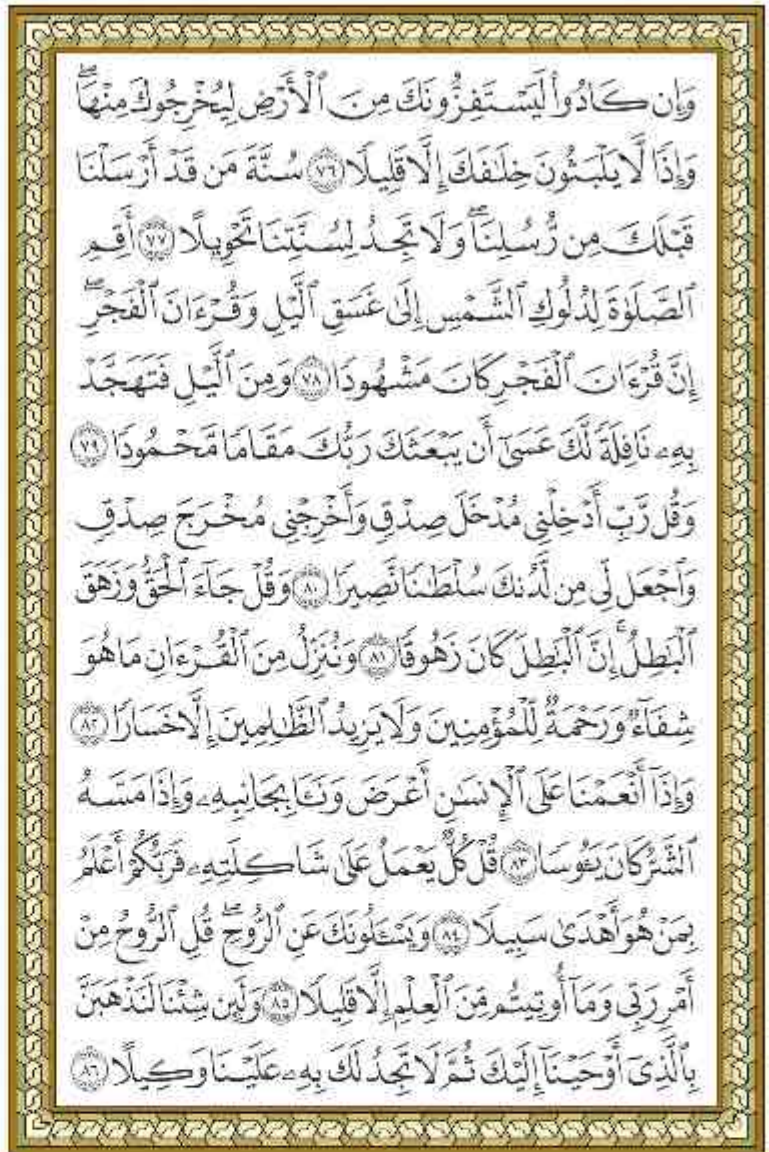 وَإِن كَادُوا۟ لَيَسْتَفِزُّونَكَ مِنَ ٱلْأَرْضِ لِيُخْرِجُوكَ مِنْهَا ۖ
وَإِذًا لَّا يَلْبَثُونَ خِلَٰفَكَ إِلَّا قَلِيلًا ٧٦ سُنَّةَ مَن قَدْ أَرْسَلْنَا
قَبْلَكَ مِن رُّسُلِنَا ۖ وَلَا تَجِدُ لِسُنَّتِنَا تَحْوِيلًا ٧٧ أَقِمِ
ٱلصَّلَوٰةَ لِدُلُوكِ ٱلشَّمْسِ إِلَىٰ غَسَقِ ٱلَّيْلِ وَقُرْءَانَ ٱلْفَجْرِ ۖ
إِنَّ قُرْءَانَ ٱلْفَجْرِ كَانَ مَشْهُودًا ٧٨ وَمِنَ ٱلَّيْلِ فَتَهَجَّدْ
بِهِۦ نَافِلَةً لَّكَ عَسَىٰٓ أَن يَبْعَثَكَ رَبُّكَ مَقَامًا مَّحْمُودًا ٧٩
وَقُل رَّبِّ أَدْخِلْنِى مُدْخَلَ صِدْقٍ وَأَخْرِجْنِى مُخْرَجَ صِدْقٍ
وَٱجْعَل لِّى مِن لَّدُنكَ سُلْطَٰنًا نَّصِيرًا ٨٠ وَقُلْ جَآءَ ٱلْحَقُّ وَزَهَقَ
ٱلْبَٰطِلُ ۚ إِنَّ ٱلْبَٰطِلَ كَانَ زَهُوقًا ٨١ وَنُنَزِّلُ مِنَ ٱلْقُرْءَانِ مَا هُوَ
شِفَآءٌ وَرَحْمَةٌ لِّلْمُؤْمِنِينَ وَلَا يَزِيدُ ٱلظَّٰلِمِينَ إِلَّا خَسَارًا ٨٢
وَإِذَآ أَنْعَمْنَا عَلَى ٱلْإِنسَٰنِ أَعْرَضَ وَنَـَٔا بِجَانِبِهِۦ وَإِذَا مَسَّهُ
ٱلشَّرُّ كَانَ يَـُٔوسًا ٨٣ قُلْ كُلٌّ يَعْمَلُ عَلَىٰ شَاكِلَتِهِۦ فَرَبُّكُمْ أَعْلَمُ
بِمَنْ هُوَ أَهْدَىٰ سَبِيلًا ٨٤ وَيَسْـَٔلُونَكَ عَنِ ٱلرُّوحِ ۖ قُلِ ٱلرُّوحُ مِنْ
أَمْرِ رَبِّى وَمَآ أُوتِيتُم مِّنَ ٱلْعِلْمِ إِلَّا قَلِيلًا ٨٥ وَلَئِن شِئْنَا لَنَذْهَبَنَّ
بِٱلَّذِىٓ أَوْحَيْنَآ إِلَيْكَ ثُمَّ لَا تَجِدُ لَكَ بِهِۦ عَلَيْنَا وَكِيلًا ٨٦